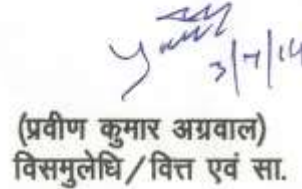 3/7/14
(प्रवीण कुमार अग्रवाल)
विसमुलेधि/वित्त एवं सा.